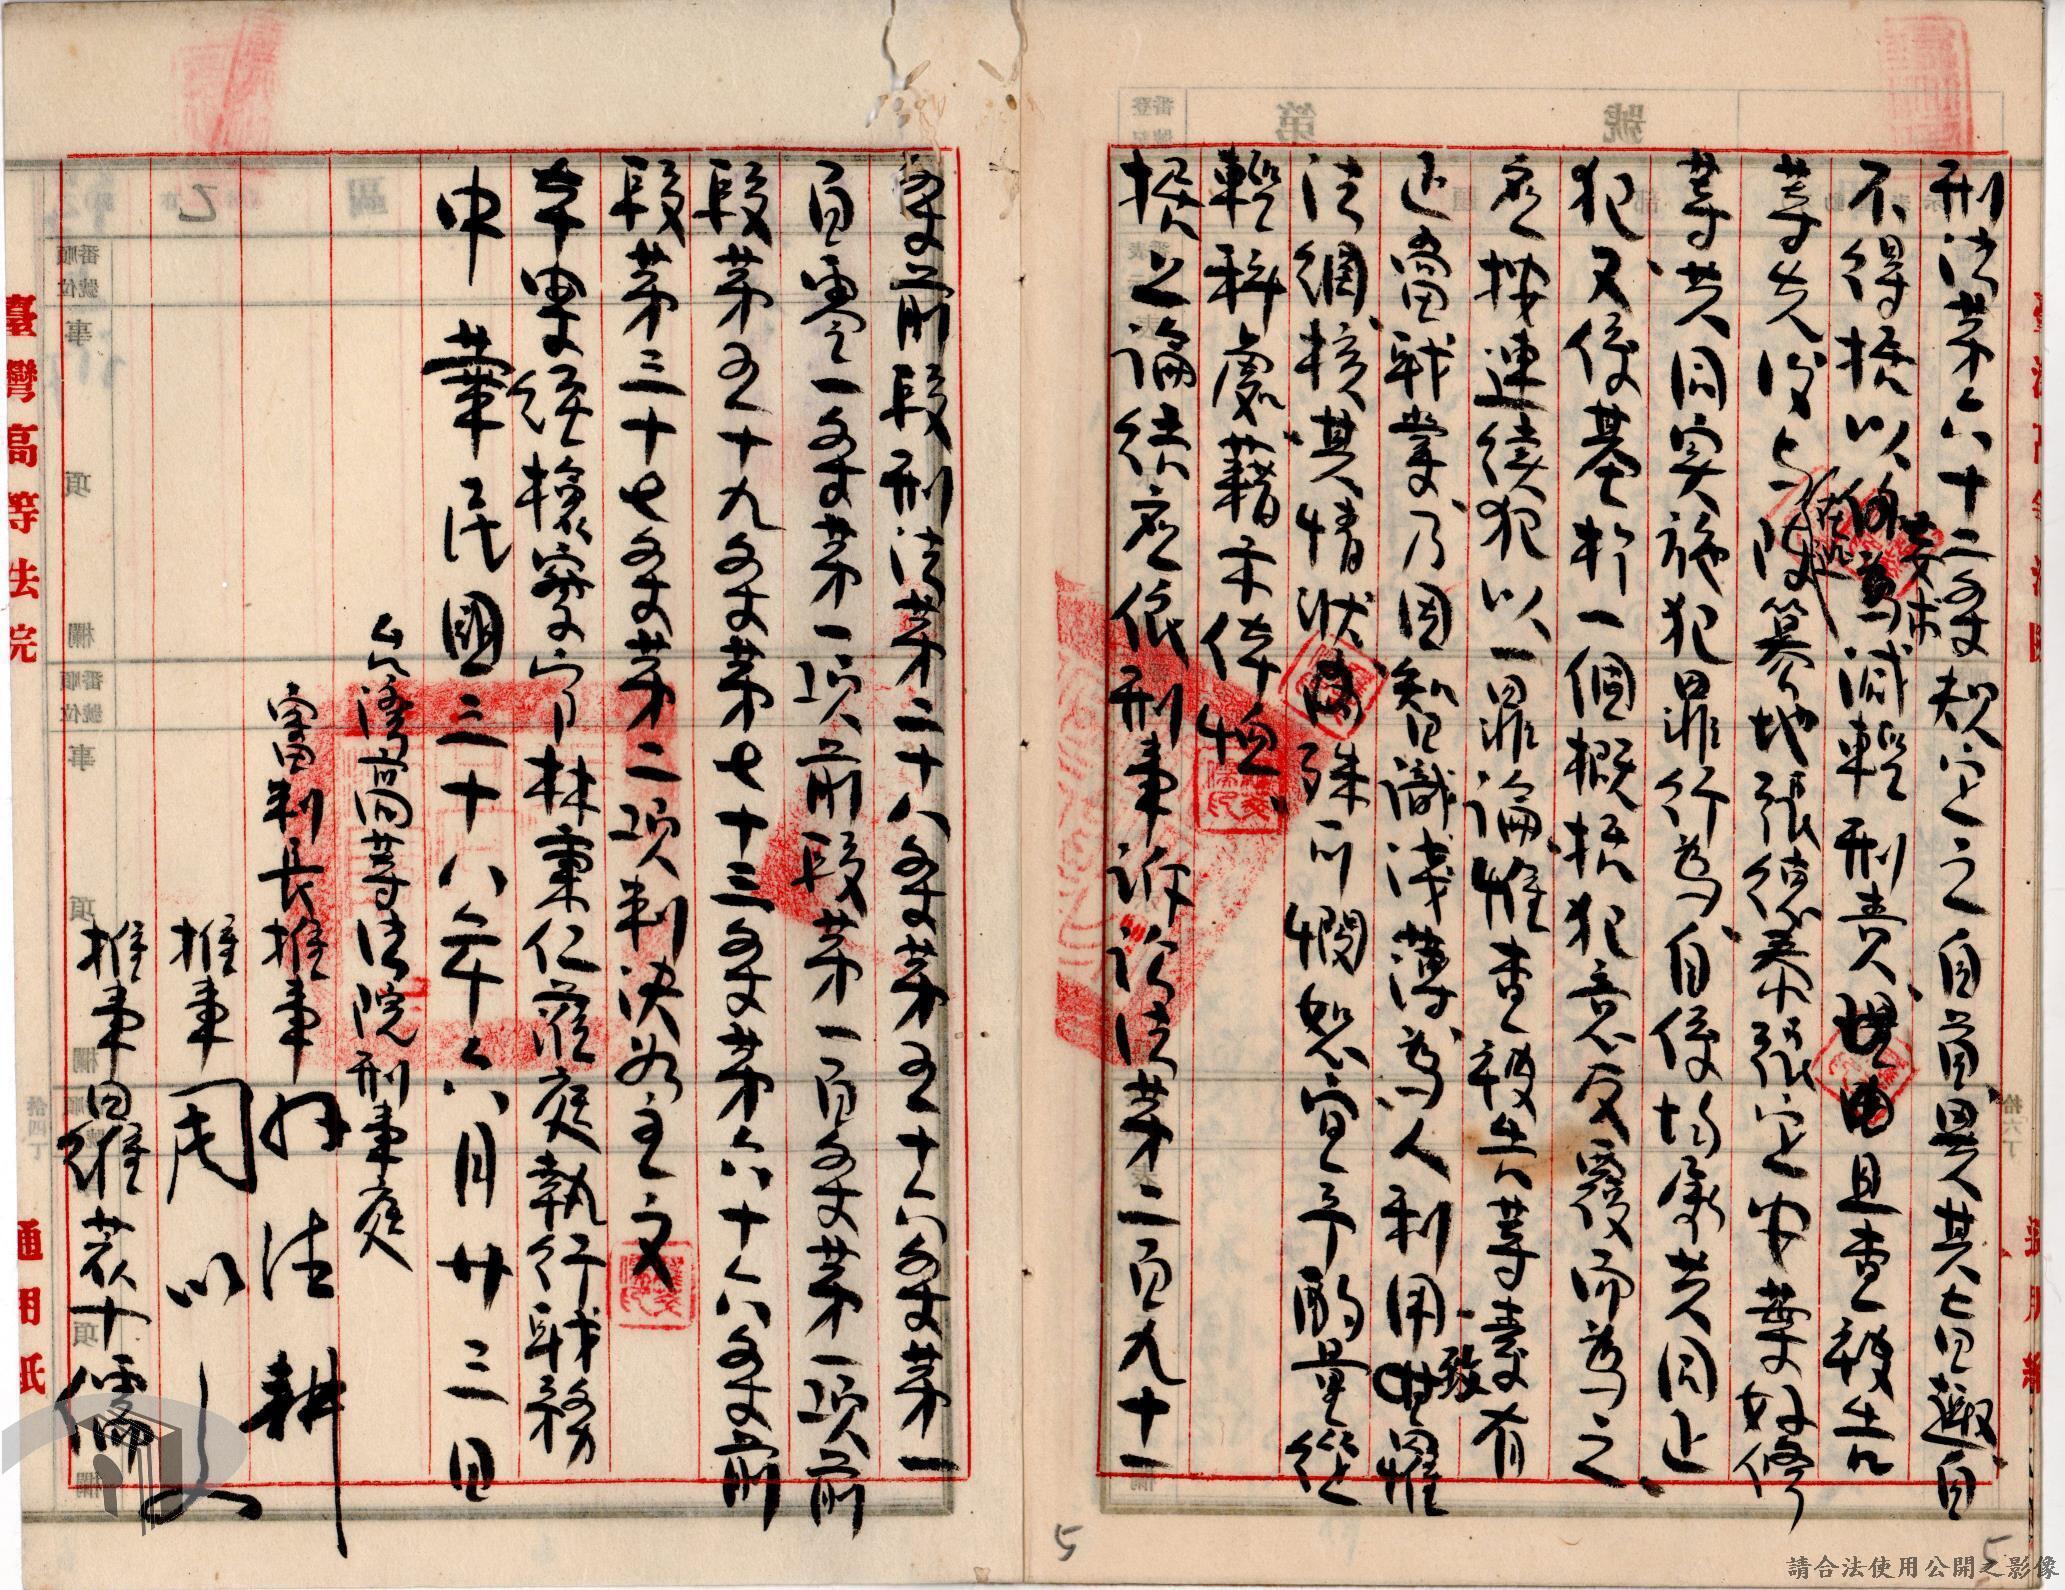 刑法第六十二條規定之自首異其旨趣自
不得據以減輕刑責且查被告
等先後與陳篡地張德秦張定中葉如修
等共同實施犯罪行為自係均屬共同正
犯又係基於一個概括犯意反覆而為之
應按連續犯以一罪論惟查被告等業有
正當職業乃因智識淺薄為人利用致罹
法網核其情狀殊可憫恕宜予酌量從
輕科處藉示体恤
據上論結應依刑事訴訟法第二百九十一
條前段刑法第二十八條第五十六條第一
百零一條第一項前段第一百條第一項前
段第五十九條第七十三條第六十六條前
段第三十七條第二項判決如主文
本案經檢察官林秉仁蒞庭執行職務
中華民國三十八年六月廿三日
台灣高等法院刑事庭
審判長推事
推事周以
推事
臺灣高等法院
通用紙
5
5
請合法使用公開之影像